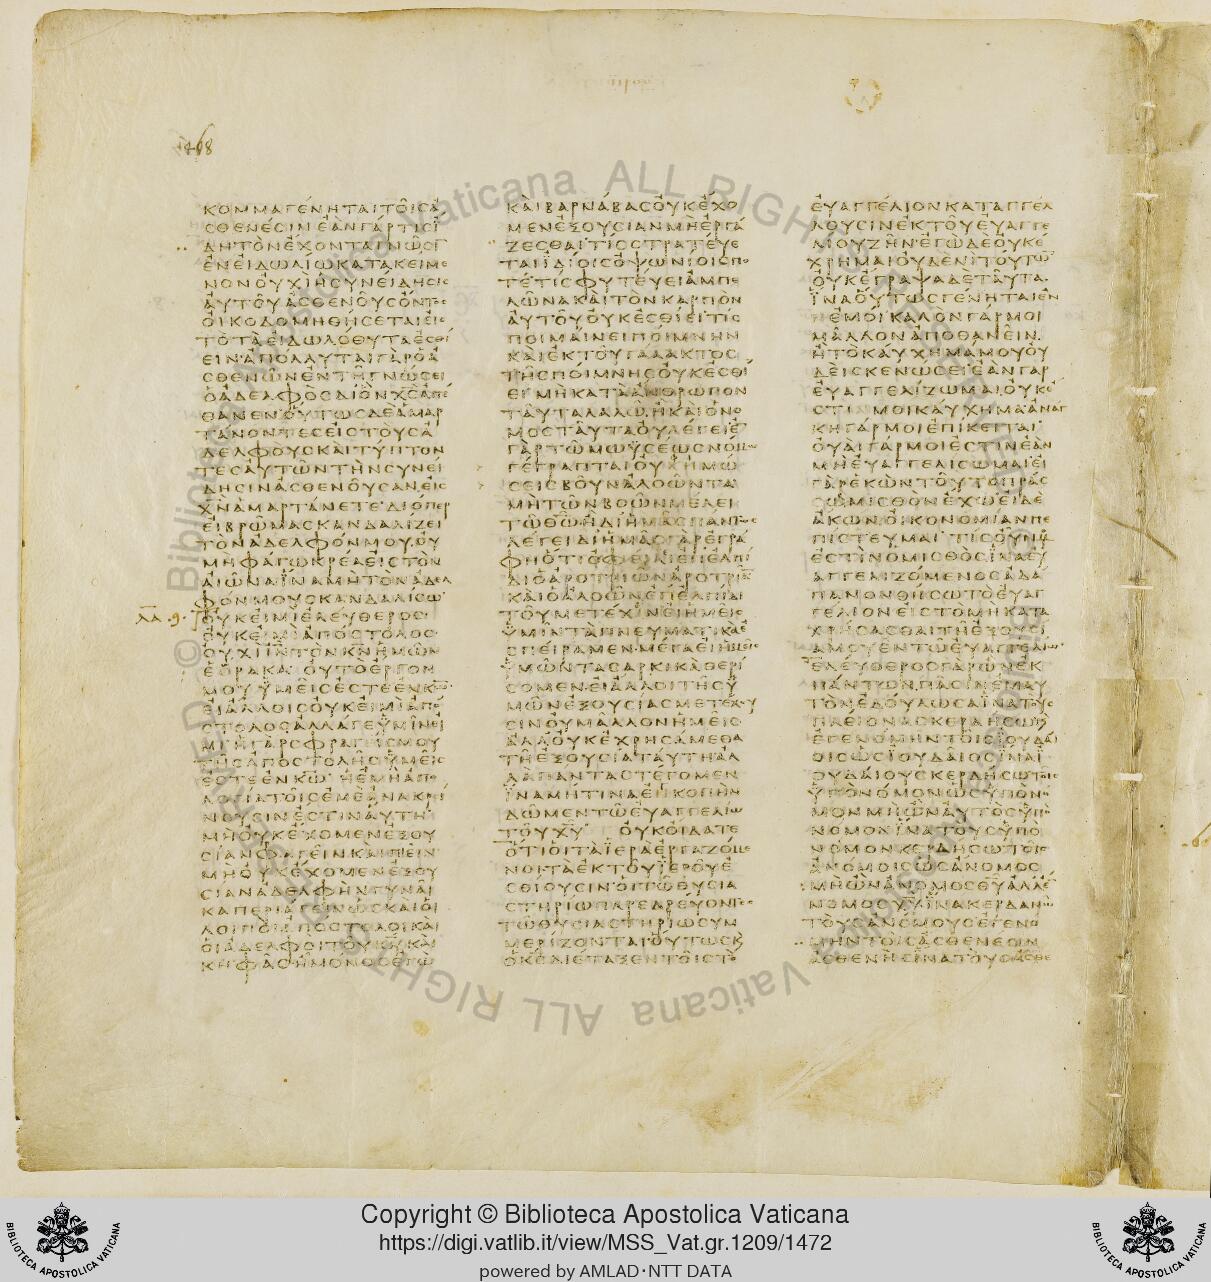 1468
ΚΟΜΜΑΓΕΝΗΤΑΙΤΟΙCΑ
CΘΕΝΕCΙΝΕΑΝΓΑΡΤΙCΙ
ΔΗΤΟΝΕΧΟΝΤΑΓΝΩCΙ
ΕΝΕΙΔΩΛΙΩΚΑΤΑΚΕΙΜΕ
ΝΟΝΟΥΧΙΗCΥΝΕΙΔΗCΙC
ΑΥΤΟΥΑCΘΕΝΟΥCΟΝΤΟC
ΟΙΚΟΔΟΜΗΘΗCΕΤΑΙΕΙC
ΤΟΤΑΕΙΔΩΛΟΘΥΤΑΕCΘΙ
ΕΙΝΑΠΟΛΛΥΤΑΙΓΑΡΟΑ
CΘΕΝΩΝΕΝΤΗΓΝΩCΕΙ
ΟΑΔΕΛΦΟCΔΙΟΝΧCΑΠΕ
ΘΑΝΕΝΟΥΤΩCΔΕΑΜΑΡ
ΤΑΝΟΝΤΕCΕΙCΤΟΥCΑ
ΔΕΛΦΟΥCΚΑΙΤΥΠΤΟΝ
ΤΕCΑΥΤΩΝΤΗΝCΥΝΕΙ
ΔΗCΙΝΑCΘΕΝΟΥCΑΝΕΙC
ΧΝΑΜΑΡΤΑΝΕΤΕΔΙΟΠΕΡ
ΕΙΒΡΩΜΑCΚΑΝΔΑΛΙΖΕΙ
ΤΟΝΑΔΕΛΦΟΝΜΟΥΟΥ
ΜΗΦΑΓΩΚΡΕΑΕΙCΤΟΝ
ΑΙΩΝΑΙΝΑΜΗΤΟΝΑΔΕΛ
ΦΟΝΜΟΥCΚΑΝΔΑΛΙCΩ
ΟΥΚΕΙΜΙΕΛΕΥΘΕΡΟC
ΟΥΚΕΙΜΙΑΠΟCΤΟΛΟC
ΟΥΧΙΙΝΤΟΝΚΝΗΜΩΝ
ΕΟΡΑΚΑΟΥΤΟΕΡΓΟΝ
ΜΟΥΥΜΕΙCΕCΤΕΕΝΚΩ
ΕΙΑΛΛΟΙCΟΥΚΕΙΜΙΑΠΟ
CΤΟΛΟCΑΛΛΑΓΕΥΜΙΝΕΙ
ΜΙΗΓΑΡCΦΡΑΓΕΙCΜΟΥ
ΤΗCΑΠΟCΤΟΛΗCΥΜΕΙC
ΕCΤΕΕΝΚΩΗΕΜΗΑΠΟ
ΛΟΓΙΑΤΟΙCΕΜΕΑΝΑΚΡΙ
ΝΟΥCΙΝΕCΤΙΝΑΥΤΗ
ΜΗΟΥΚΕΧΟΜΕΝΕΞΟΥ
CΙΑΝΦΑΓΕΙΝΚΑΙΠΕΙΝ
ΜΗΟΥΚΕΧΟΜΕΝΕΞΟΥ
CΙΑΝΑΔΕΛΦΗΝΓΥΝΑΙ
ΚΑΠΕΡΙΑΓΕΙΝΩCΚΑΙΟΙ
ΛΟΙΠΟΙΑΠΟCΤΟΛΟΙΚΑΙ
ΟΙΑΔΕΛΦΟΙΤΟΥΚΥΚΑΙ
ΚΗΦΑCΗΜΟΝΟCΕΓΩ
ΚΑΙΒΑΡΝΑΒΑCΟΥΚΕΧΟ
ΜΕΝΕΞΟΥCΙΑΝΜΗΕΡΓΑ
ΖΕCΘΑΙΤΙCCΤΡΑΤΕΥΕ
ΤΑΙΙΔΙΟΙCΟΨΩΝΙΟΙCΠΟ
ΤΕΤΙCΦΥΤΕΥΕΙΑΜΠΕ
ΛΩΝΑΚΑΙΤΟΝΚΑΡΠΟΝ
ΑΥΤΟΥΟΥΚΕCΘΙΕΙΤΙC
ΠΟΙΜΑΙΝΕΙΠΟΙΜΝΗΝ
ΚΑΙΕΚΤΟΥΓΑΛΑΚΤΟC
ΤΗCΠΟΙΜΝΗCΟΥΚΕCΘΙ
ΕΙΜΗΚΑΤΑΑΝΘΡΩΠΟΝ
ΤΑΥΤΑΛΑΛΩΗΚΑΙΟΝΟ
ΜΟCΤΑΥΤΑΟΥΛΕΓΕΙΕ
ΓΑΡΤΩΜΩΥCΕΩCΝΟΜΩ
ΓΕΓΡΑΠΤΑΙΟΥΚΗΜΩ
CΕΙCΒΟΥΝΑΛΟΩΝΤΑ
ΜΗΤΩΝΒΟΩΝΜΕΛΕΙ
ΤΩΘΩΗΔΙΗΜΑCΠΑΝΤΩC
ΛΕΓΕΙΔΙΗΜΑCΓΑΡΕΓΡΑ
ΦΗΟΤΙΟΦΕΙΛΕΙΕΠΕΛΠΙ
ΔΙΟΑΡΟΤΡΙΩΝΑΡΟΤΡΙΑ
ΚΑΙΟΑΛΟΩΝΕΠΕΛΠΙΔΙ
ΤΟΥΜΕΤΕΧΙΝΕΙΗΜΕΙC
ΥΜΙΝΤΑΠΝΕΥΜΑΤΙΚΑΕ
CΠΕΙΡΑΜΕΝΜΕΓΑΕΙΗΜΕΙC
ΥΜΩΝΤΑCΑΡΚΙΚΑΘΕΡΙ
CΟΜΕΝΕΙΑΛΛΟΙΤΗCΥ
ΜΩΝΕΞΟΥCΙΑCΜΕΤΕΧΟΥ
CΙΝΟΥΜΑΛΛΟΝΗΜΕΙC
ΑΛΛΟΥΚΕΧΡΗCΑΜΕΘΑ
ΤΗΕΞΟΥCΙΑΤΑΥΤΗΑΛ
ΛΑΠΑΝΤΑCΤΕΓΟΜΕΝ
ΙΝΑΜΗΤΙΝΑΕΝΚΟΠΗΝ
ΔΩΜΕΝΤΩΕΥΑΓΓΕΛΙΩ
ΤΟΥΧΥ ΟΥΚΟΙΔΑΤΕ
ΟΤΙΟΙΤΑΙΕΡΑΕΡΓΑΖΟΜΕ
ΝΟΙΤΑΕΚΤΟΥΙΕΡΟΥΕ
CΘΙΟΥCΙΝΟΙΤΩΘΥCΙΑ
CΤΗΡΙΩΠΑΡΕΔΡΕΥΟΝΤΕC
ΤΩΘΥCΙΑCΤΗΡΙΩCΥΜ
ΜΕΡΙΖΟΝΤΑΙΟΥΤΩCΚ
ΟΚCΔΙΕΤΑΞΕΝΤΟΙCΤΟ
ΕΥΑΓΓΕΛΙΟΝΚΑΤΑΓΓΕΛ
ΛΟΥCΙΝΕΚΤΟΥΕΥΑΓΓΕ
ΛΙΟΥΖΗΝΕΓΩΔΕΟΥΚΕ
ΧΡΗΜΑΙΟΥΔΕΝΙΤΟΥΤΩ
ΟΥΚΕΓΡΑΨΑΔΕΤΑΥΤΑ
ΙΝΑΟΥΤΩCΓΕΝΗΤΑΙΕΝ
ΕΜΟΙΚΑΛΟΝΓΑΡΜΟΙ
ΜΑΛΛΟΝΑΠΟΘΑΝΕΙΝ
ΗΤΟΚΑΥΧΗΜΑΜΟΥΟΥ
ΔΕΙCΚΕΝΩCΕΙΕΑΝΓΑΡ
ΕΥΑΓΓΕΛΙΖΩΜΑΙΟΥΚΕ
CΤΙΝΜΟΙΚΑΥΧΗΜΑΑΝΑΓ
ΚΗΓΑΡΜΟΙΕΠΙΚΕΙΤΑΙ
ΟΥΑΙΓΑΡΜΟΙΕCΤΙΝΕΑΝ
ΜΗΕΥΑΓΓΕΛΙCΩΜΑΙΕΙ
ΓΑΡΕΚΩΝΤΟΥΤΟΠΡΑC
CΩΜΙCΘΟΝΕΧΩΕΙΔΕ
ΑΚΩΝΟΙΚΟΝΟΜΙΑΝΠΕ
ΠΙCΤΕΥΜΑΙΤΙCΟΥΝΜΟΥ
ΕCΤΙΝΟΜΙCΘΟCΙΝΑΕΥ
ΑΓΓΕΛΙΖΟΜΕΝΟCΑΔΑ
ΠΑΝΟΝΘΗCΩΤΟΕΥΑΓ
ΓΕΛΙΟΝΕΙCΤΟΜΗΚΑΤΑ
ΧΡΗCΑCΘΑΙΤΗΕΞΟΥCΙ
ΑΜΟΥΕΝΤΩΕΥΑΓΓΕΛΙΩ
ΕΛΕΥΘΕΡΟCΓΑΡΩΝΕΚ
ΠΑΝΤΩΝΠΑCΙΝΕΜΑΥ
ΤΟΝΕΔΟΥΛΩCΑΙΝΑΤΟΥC
ΠΛΕΙΟΝΑCΚΕΡΔΗCΩΚ
ΕΓΕΝΟΜΗΝΤΟΙCΙΟΥΔΑΙ
ΟΙCΩCΙΟΥΔΑΙΟCΙΝΑΙ
ΟΥΔΑΙΟΥCΚΕΡΔΗCΩΤΟΙC
ΥΠΟΝΟΜΟΝΩCΥΠΟΝΟ
ΜΟΝΜΗΩΝΑΥΤΟCΥΠΟ
ΝΟΜΟΝΙΝΑΤΟΥCΥΠΟ
ΝΟΜΟΝΚΕΡΔΗCΩΤΟΙC
ΑΝΟΜΟΙCΩCΑΝΟΜΟC
ΜΗΩΝΑΝΟΜΟCΘΥΑΛΛΕΝ
ΝΟΜΟCΧΥΙΝΑΚΕΡΔΑΝΩ
ΤΟΥCΑΝΟΜΟΥCΕΓΕΝΟ
ΜΗΝΤΟΙCΑCΘΕΝΕCΙΝ
ΑCΘΕΝΗCΙΝΑΤΟΥCΑCΘΕ
Biblioteca Apostolica Vaticana ALL RIGHTS RESERVED
Copyright © Biblioteca Apostolica Vaticana
https://digi.vatlib.it/view/MSS_Vat.gr.1209/1472
powered by AMLAD·NTT DATA
BIBLIOTECA APOSTOLICA VATICANA
BIBLIOTECA APOSTOLICA VATICANA